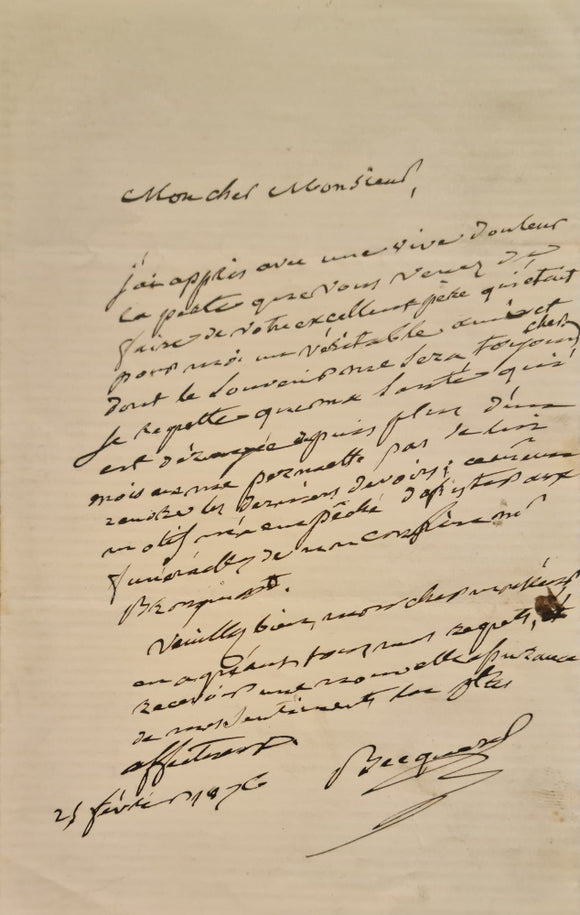 Mon cher Monsieur,
J'ai appris avec une vive douleur
la perte que vous venez de
faire de votre excellent père qui était
pour moi un véritable ami et
dont le souvenir me sera toujours cher
Je regrette que ma santé qui
est dérangée depuis plus d'un
mois ne me permette pas de lui
rendre les derniers devoirs; ce même
motif m'a empêché d'assister aux
funérailles de mon confrère mr
Brongniart.
Veuillez bien, mon cher monsieur
en agréant tous mes regrets, et
recevoir une nouvelle assurance
de mes sentiments les plus
affectueux
Becquerel
25 février 1876